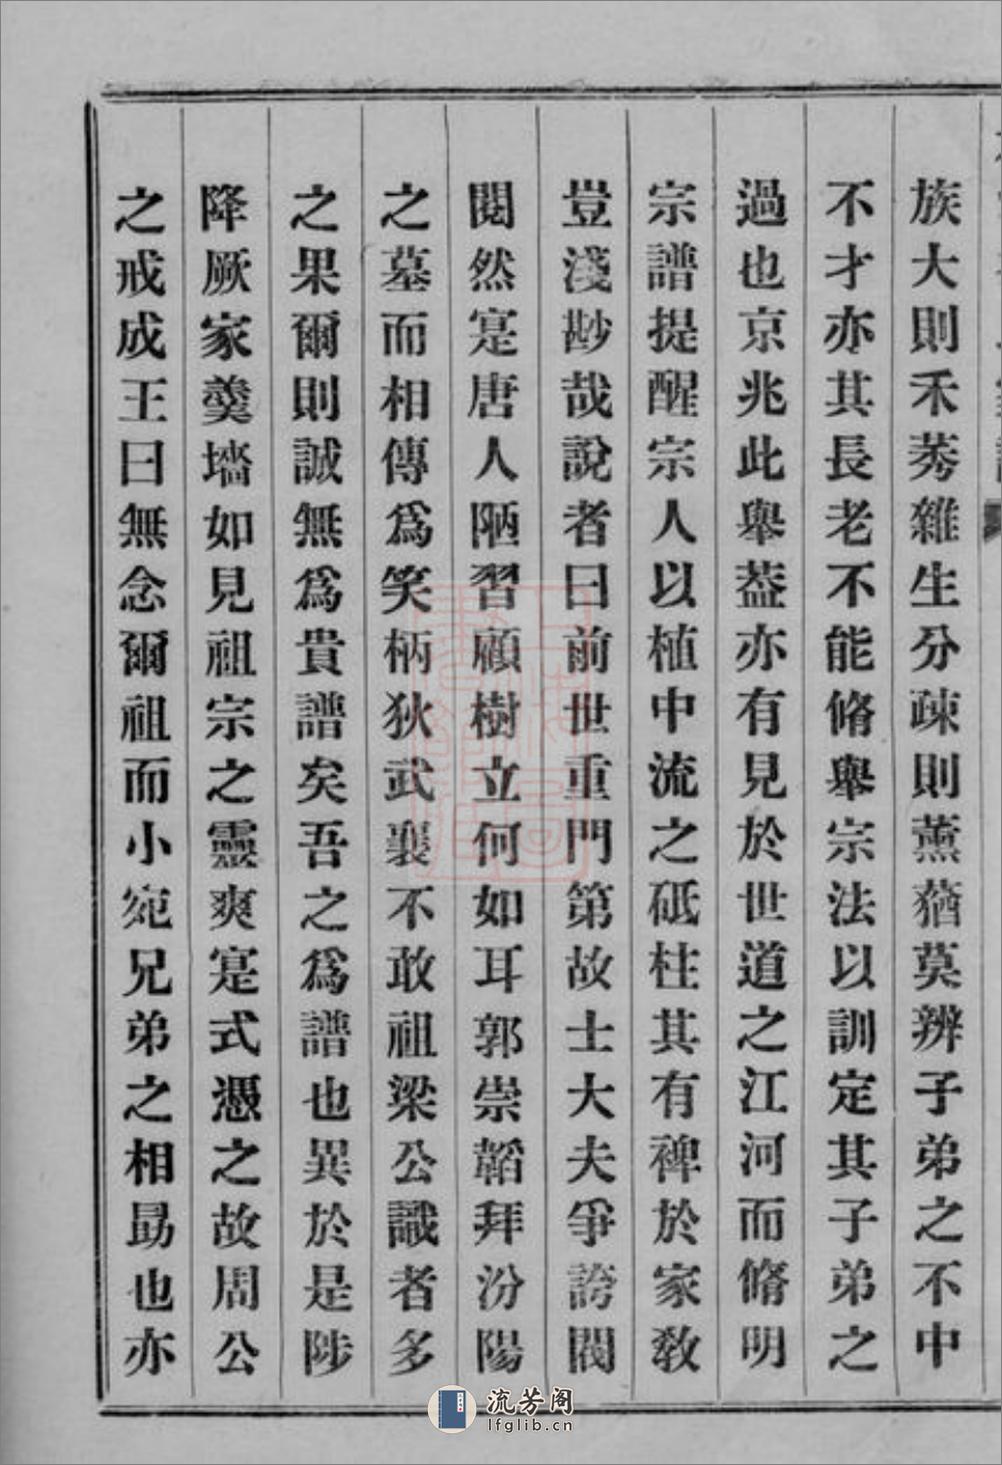 族大則禾莠雜生分疎則薰蕕莫辨子弟之不中
不才亦其長老不能脩舉宗法以訓定其子弟之
過也京兆此舉葢亦有見於世道之江河而脩明
宗譜提醒宗人以植中流之砥柱其有裨於家敎
豈淺尠哉說者曰前世重門第故士大夫爭誇閥
閱然寔唐人陋習顧樹立何如耳郭崇韜拜汾陽
之墓而相傳爲笑柄狄武襄不敢祖梁公識者多
之果爾則誠無爲貴譜矣吾之爲譜也異於是陟
降厥家羹墻如見祖宗之靈爽寔式憑之故周公
之戒成王曰無念爾祖而小宛兄弟之相勗也亦
流芳阁
lfglib.cn